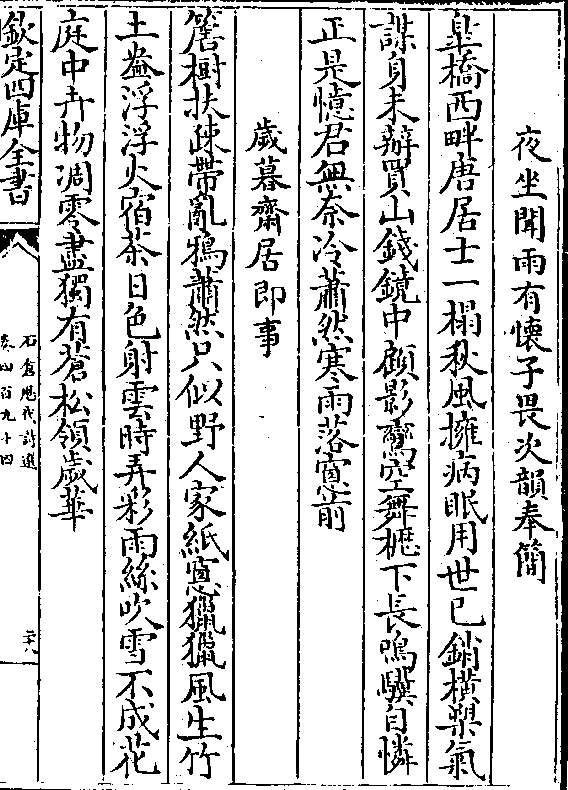 夜坐聞雨有懐子畏次韻奉簡
臯橋西畔唐居士一榻秋風擁病眠用世已銷橫槊氣
謀身未辦買山錢鏡中顧影鸞空舞櫪下長鳴驥自憐
正是憶君無奈冷蕭然寒雨落窻前
歲暮齋居即事
籬樹扶疎帶亂鴉蕭然只似野人家紙窻獵獵風生竹
土盎浮浮火宿茶日色射雲時弄彩雨絲吹雪不成花
庭中卉物凋零盡獨有蒼松領歲華
欽定四庫全書
石倉歷代詩選
卷四百九十四
二十八